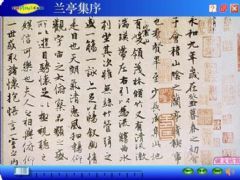 兰亭集序
永和九年歲在癸丑暮春之初會
于會稽山陰之蘭亭脩禊事
也羣賢畢至少長咸集此地
有崇山峻領茂林脩竹又有清流激
湍暎帶左右引以為流觴曲水
列坐其次雖無絲竹管弦之
盛一觴一詠亦足以暢敘幽情
是日也天朗氣清惠風和暢仰
觀宇宙之大俯察品類之盛
所以遊目騁懷足以極視聽之
娛信可樂也夫人之相與俯仰
一世或取諸懷抱悟言一室之內